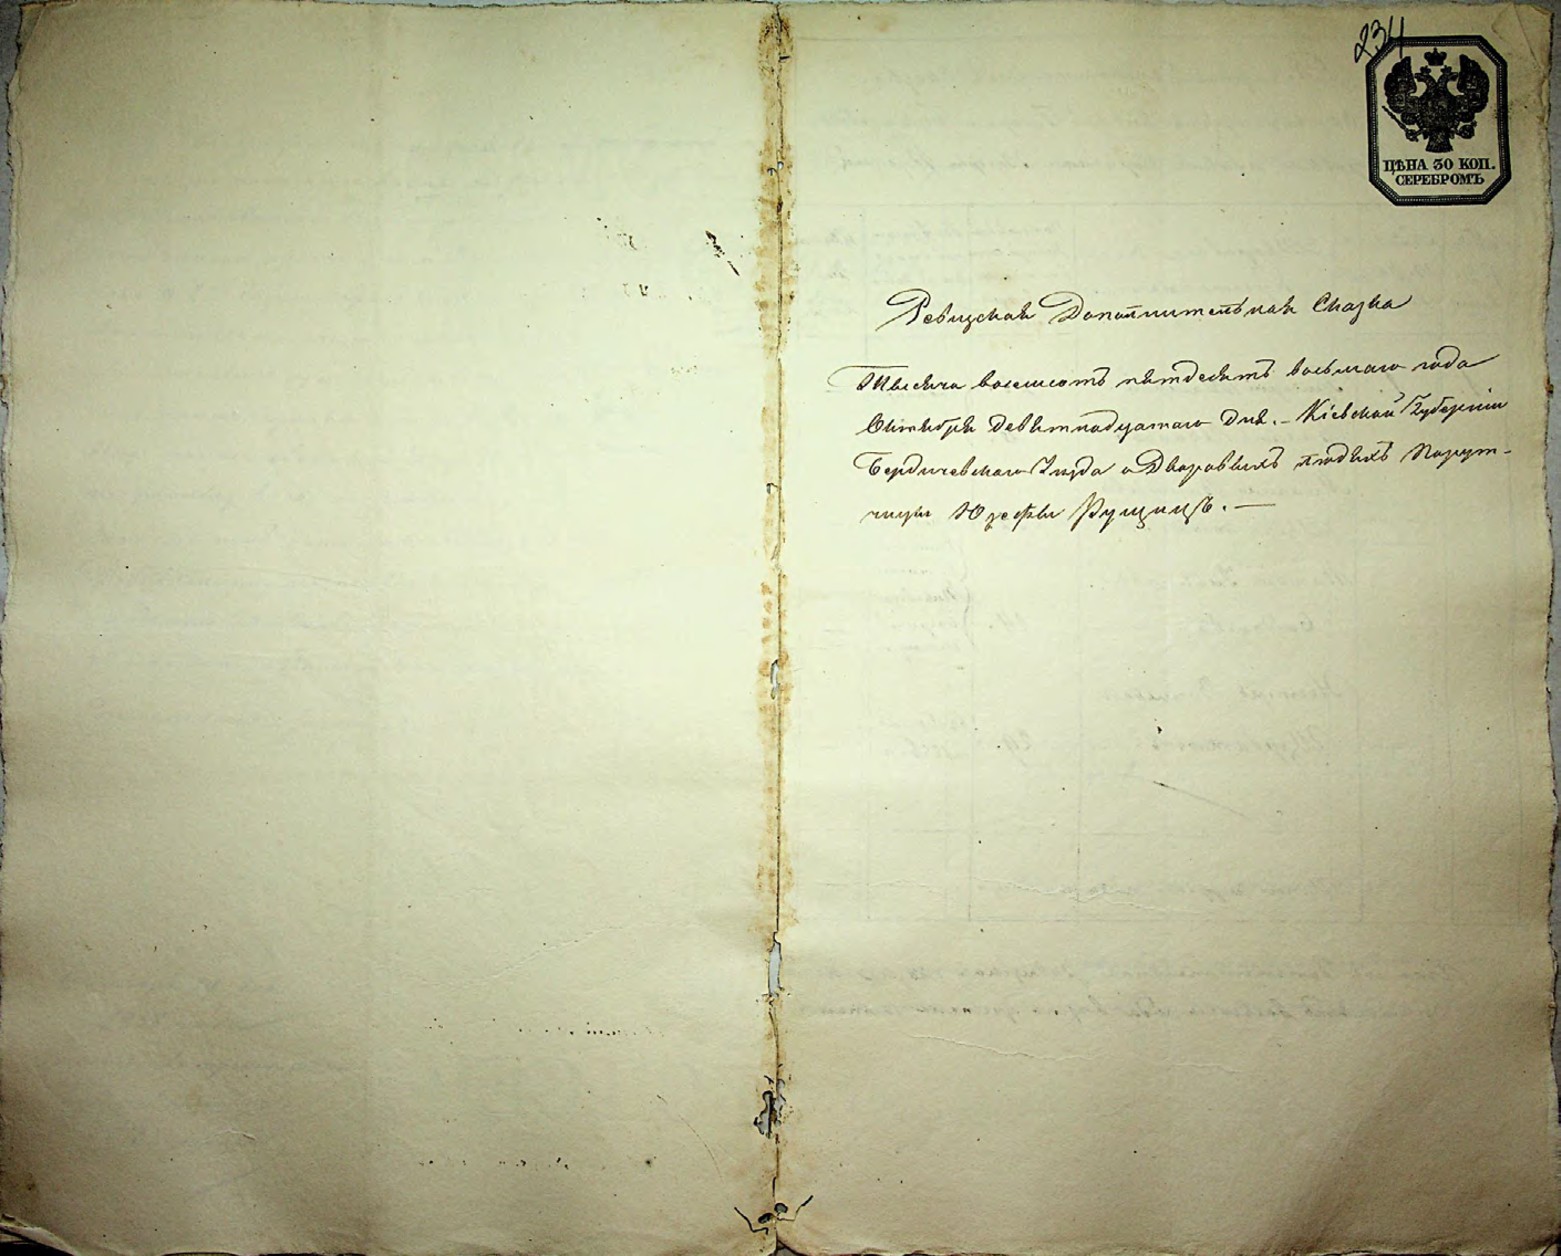 234
ЦѢНА 30 КОП.
СЕРЕБРОМЪ
Ревизская Дополнительная Сказка
Тысяча восемсотъ пятдесятъ восьмаго года
Октября девятнадцатаго дня. – Кіевской Губерніи
Бердичевскаго Уезда о Дворовыхъ людяхъ Поруч-
чицы Юзефы Рущицъ. —